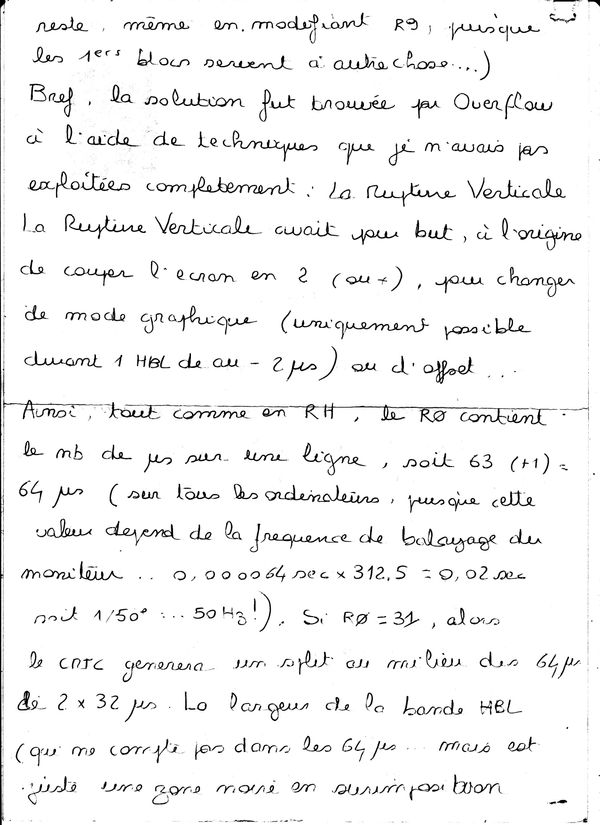 reste, même en modifiant R9, puisque
les 1ers blocs servent à autre chose...)
Bref, la solution fut trouvée par Overflow
à l'aide de techniques que je n'avais pas
exploitées completement : La Rupture Verticale
La Rupture Verticale avait pour but, à l'origine
de couper l'ecran en 2 (ou +), pour changer
de mode graphique (uniquement possible
durant 1 HBL de au - 2 µs) ou d'offset...
Ainsi, tout comme en RH, le RØ contient
le nb de µs sur une ligne, soit 63 (+1) =
64 µs (sur tous les ordinateurs, puisque cette
valeur depend de la frequence de balayage du
moniteur .. 0,000064 sec x 312,5 = 0,02 sec
soit 1/50° ... 50Hz!). Si RØ = 31, alors
le CRTC generera un split au milieu des 64 µs
de 2 x 32 µs. La largeur de la bande HBL
(qui ne compte pas dans les 64 µs... mais est
juste une zone noire en surimposition